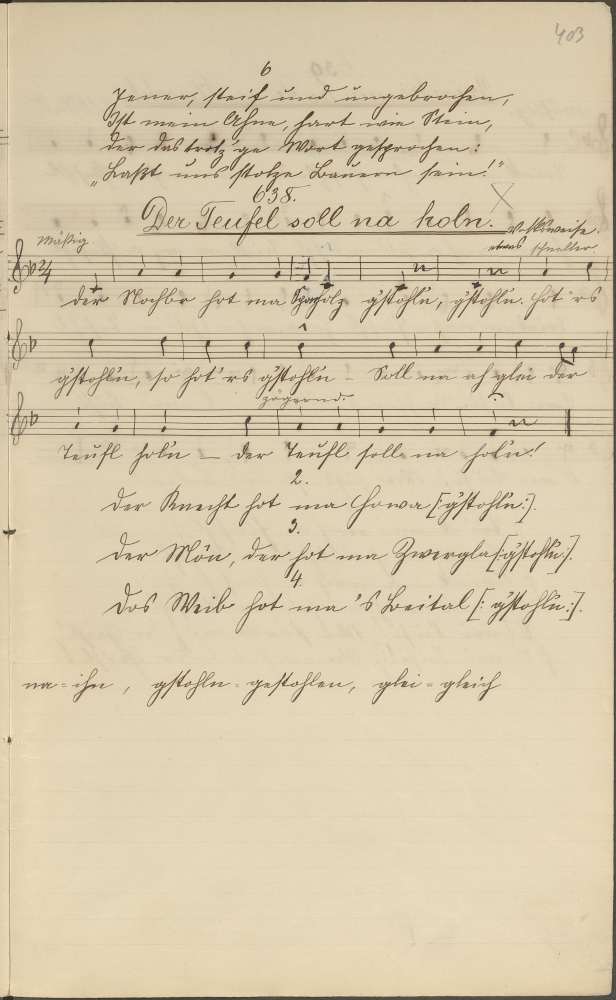 403
6
Jener, steif und ungebrochen,
Ist mein Ahne, hart wie Stein,
Der das trotz'ge Wort gesprochen:
„Laßt uns stolze Bauern sein!"
638.
Der Teufel soll na holn.
Volksweise.
Mäßig.
etwas schneller
2/4
der Nochbr hot ma g'stohl'n, g'stohl'n. hot'rs
g'stohl'n, so hot'rs g'stohl'n – Soll na ah glei der
zögernd.
Teufl hol'n — der Teufl soll na hol'n!
2.
Der Knecht hot ma [: g'stohl'n :].
3.
Der Mön, der hot ma Zwergla [: g'stohl'n :].
4.
Dos Weib hot ma 's Beital [: g'stohl'n :].
na = ihn, gstohln = gestohlen, glei = gleich